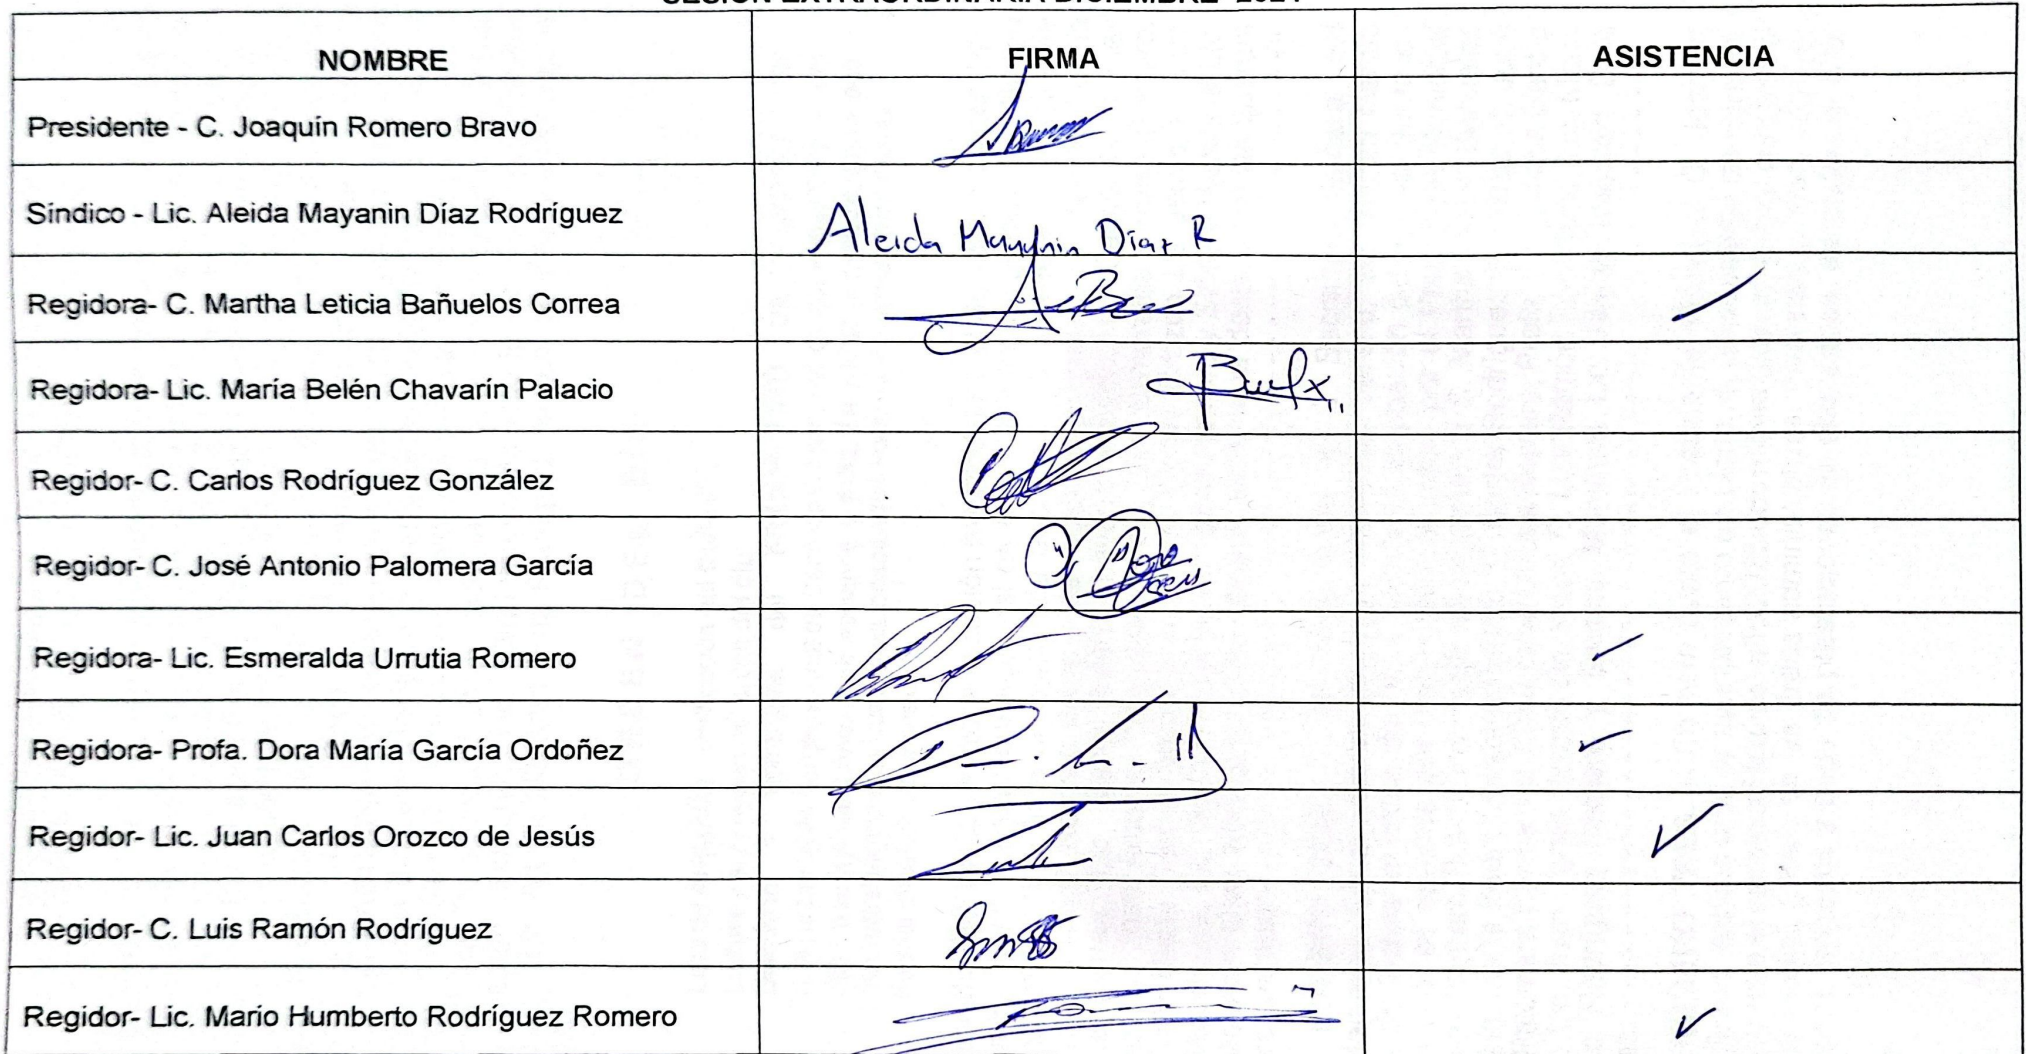 NOMBRE FIRMA ASISTENCIA
Presidente - C. Joaquín Romero Bravo
Síndico - Lic. Aleida Mayanin Díaz Rodríguez Aleida Mayanin Díaz R
Regidora- C. Martha Leticia Bañuelos Correa
Regidora- Lic. María Belén Chavarín Palacio
Regidor- C. Carlos Rodríguez González
Regidor- C. José Antonio Palomera García
Regidora- Lic. Esmeralda Urrutia Romero
Regidora- Profa. Dora María García Ordoñez
Regidor- Lic. Juan Carlos Orozco de Jesús
Regidor- C. Luis Ramón Rodríguez
Regidor- Lic. Mario Humberto Rodríguez Romero